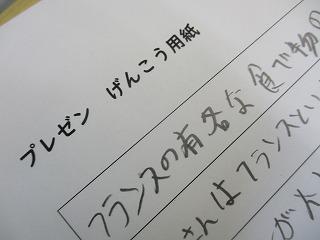 プレゼン　げんこう用紙
フランスの有名な食べ物の
さんはフランスとい
が大